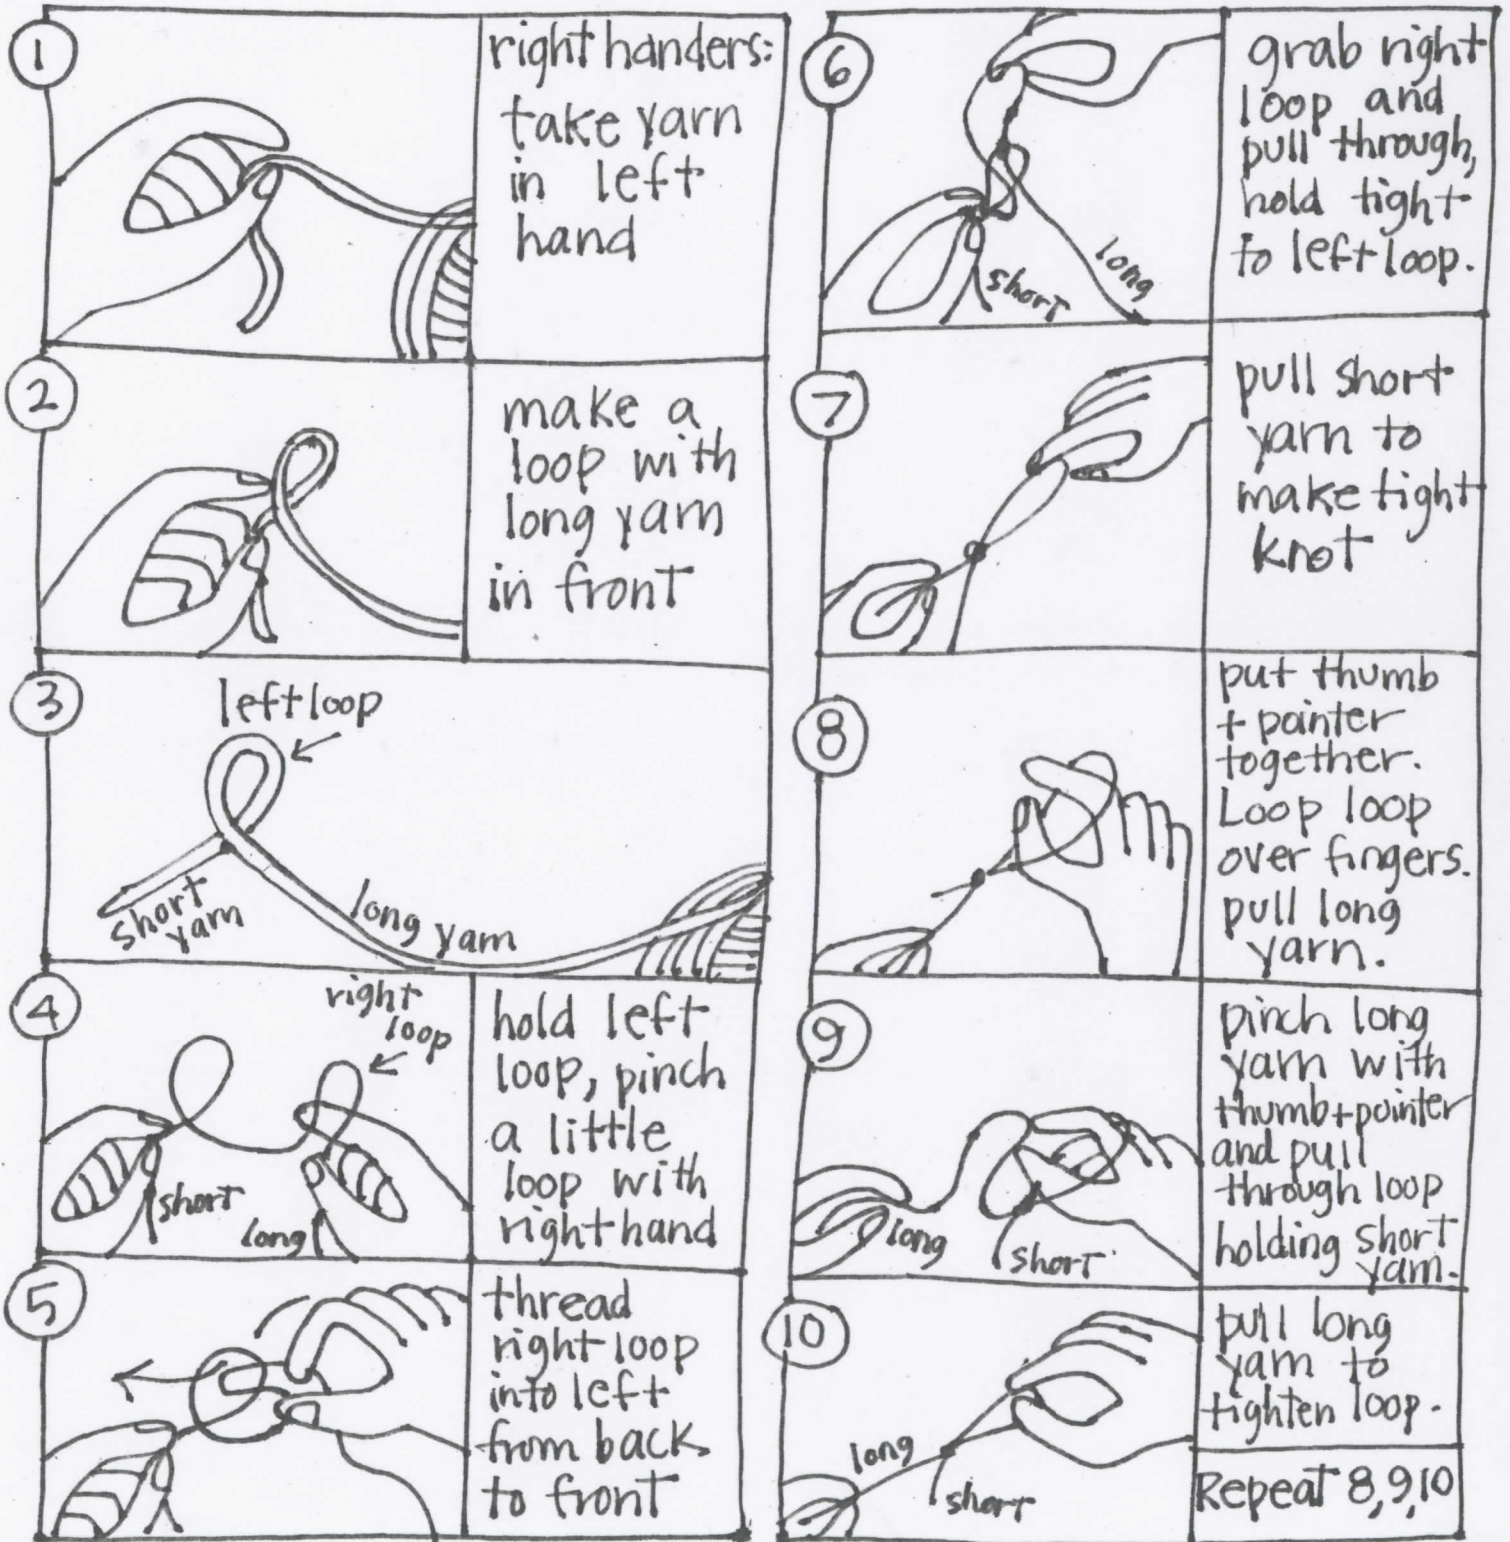 1
right handers:
take yarn
in left
hand
2
make a
loop with
long yarn
in front
3
left loop
short
yarn
long yarn
4
right
loop
short
long
hold left
loop, pinch
a little
loop with
right hand
5
thread
right loop
into left
from back
to front
6
short
long
grab right
loop and
pull through,
hold tight
to left loop.
7
pull short
yarn to
make tight
knot
8
put thumb
+ pointer
together.
Loop loop
over fingers.
pull long
yarn.
9
long
short
pinch long
yarn with
thumb+pointer
and pull
through loop
holding short
yarn.
10
long
short
pull long
yarn to
tighten loop.
Repeat 8,9,10